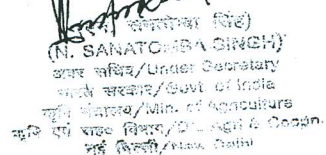 (एन. सनातोम्बा सिंह)
(N. SANATOMBA SINGH)
अवर सचिव/Under Secretary
भारत सरकार/Govt. of India
कृषि मंत्रालय/Min. of Agriculture
कृषि एवं सहकारिता विभाग/D/o. Agri & Coopn.
नई दिल्ली/New Delhi